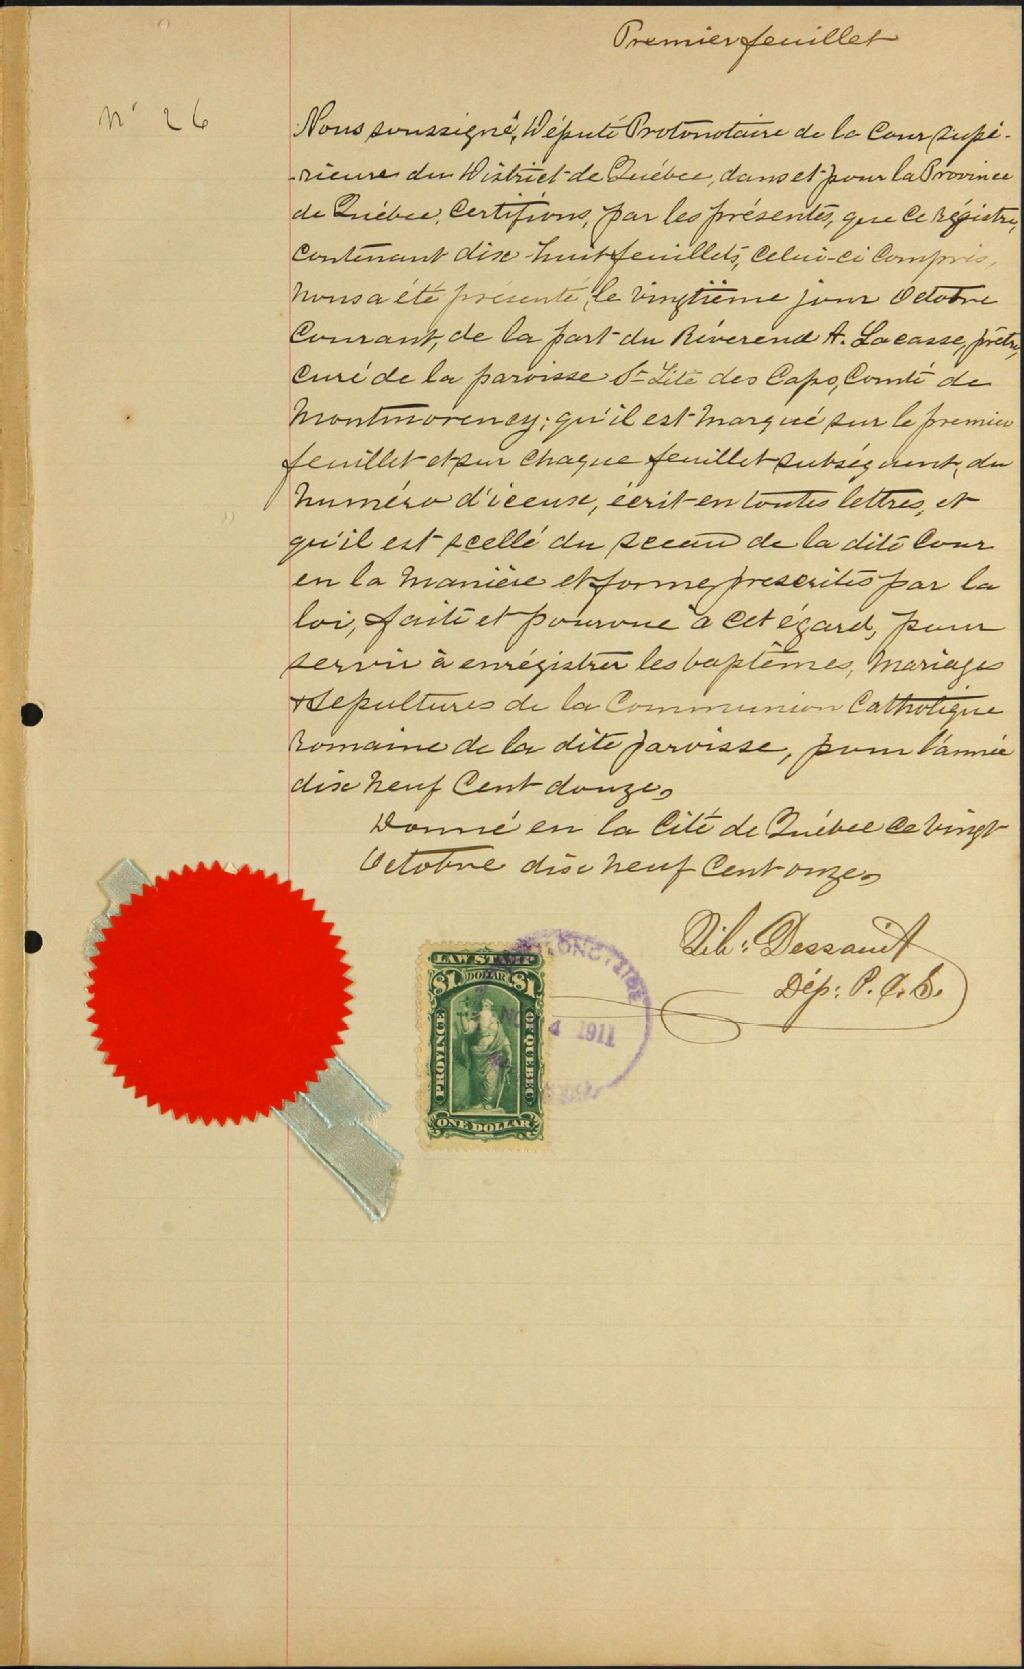 Premier feuillet
N° 26
Nous soussigné, Député Protonotaire de la Cour Supé-
-rieure du District de Québec, dans et pour la Province
de Québec, Certifions, par les présentes, que ce régistre,
contenant dix-huit feuillets, celui-ci compris,
nous a été présenté, le vingtième jour Octobre
Courant, de la part du Révérend A. Lacasse, prêtre,
curé de la paroisse St Tite des Caps, Comté de
Montmorency; qu'il est marqué sur le premier
feuillet et sur chaque feuillet subséquent, du
numéro d'iceux, écrit en toutes lettres, et
qu'il est scellé du sceau de la dite Cour
en la manière et forme prescrites par la
loi, faite et pourvue à cet égard, pour
servir à enrégistrer les baptêmes, mariages
& sépultures de la Communion Catholique
Romaine de la dite paroisse, pour l'année
dix neuf cent douze.
Donné en la Cité de Québec ce vingt
Octobre dix neuf cent onze.
Dessault
Dép: P. C. S.
LAW STAMP
$1 DOLLAR $1
PROVINCE OF QUEBEC
ONE DOLLAR
4 1911